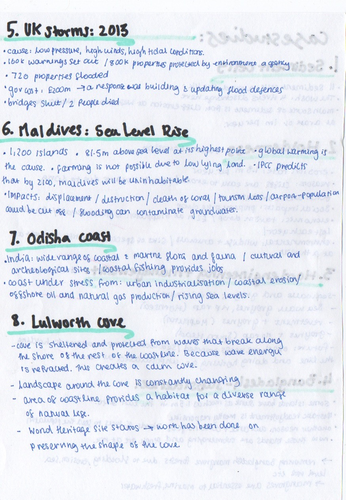 5. UK storms: 2013
• cause: low pressure, high winds, high tidal conditions.
• 160k warnings set out / 800k properties protected by environment agency
• 720 properties flooded
• gov cost: £200m → a response was building & updating flood defences
• bridges shut / 2 people died
6. Maldives: Sea Level Rise
• 1,200 islands • 81.5m above sea level at its highest point • global warming is
the cause. • farming is not possible due to low lying land. • IPCC predicts
that by 2100, maldives will be uninhabitable
• Impacts: displacement / destruction / death of coral / tourism loss / airport + population
could be cut off / flooding can contaminate groundwater.
7. Odisha coast
• India: wide range of coastal + marine flora and fauna / cultural and
archeological site / coastal fishing provides jobs
• coast under stress from: urban industrialisation / coastal erosion /
offshore oil and natural gas production / rising sea levels.
8. Lulworth cove
- cove is sheltered and protected from waves that break along
the shore of the rest of the coastline. Because wave energy
is refracted. This creates a calm cove.
- Landscape around the cove is constantly changing
- area of coastline provides a habitat for a diverse range
of natural life.
- World heritage site status → work has been done on
preserving the shape of the cove.